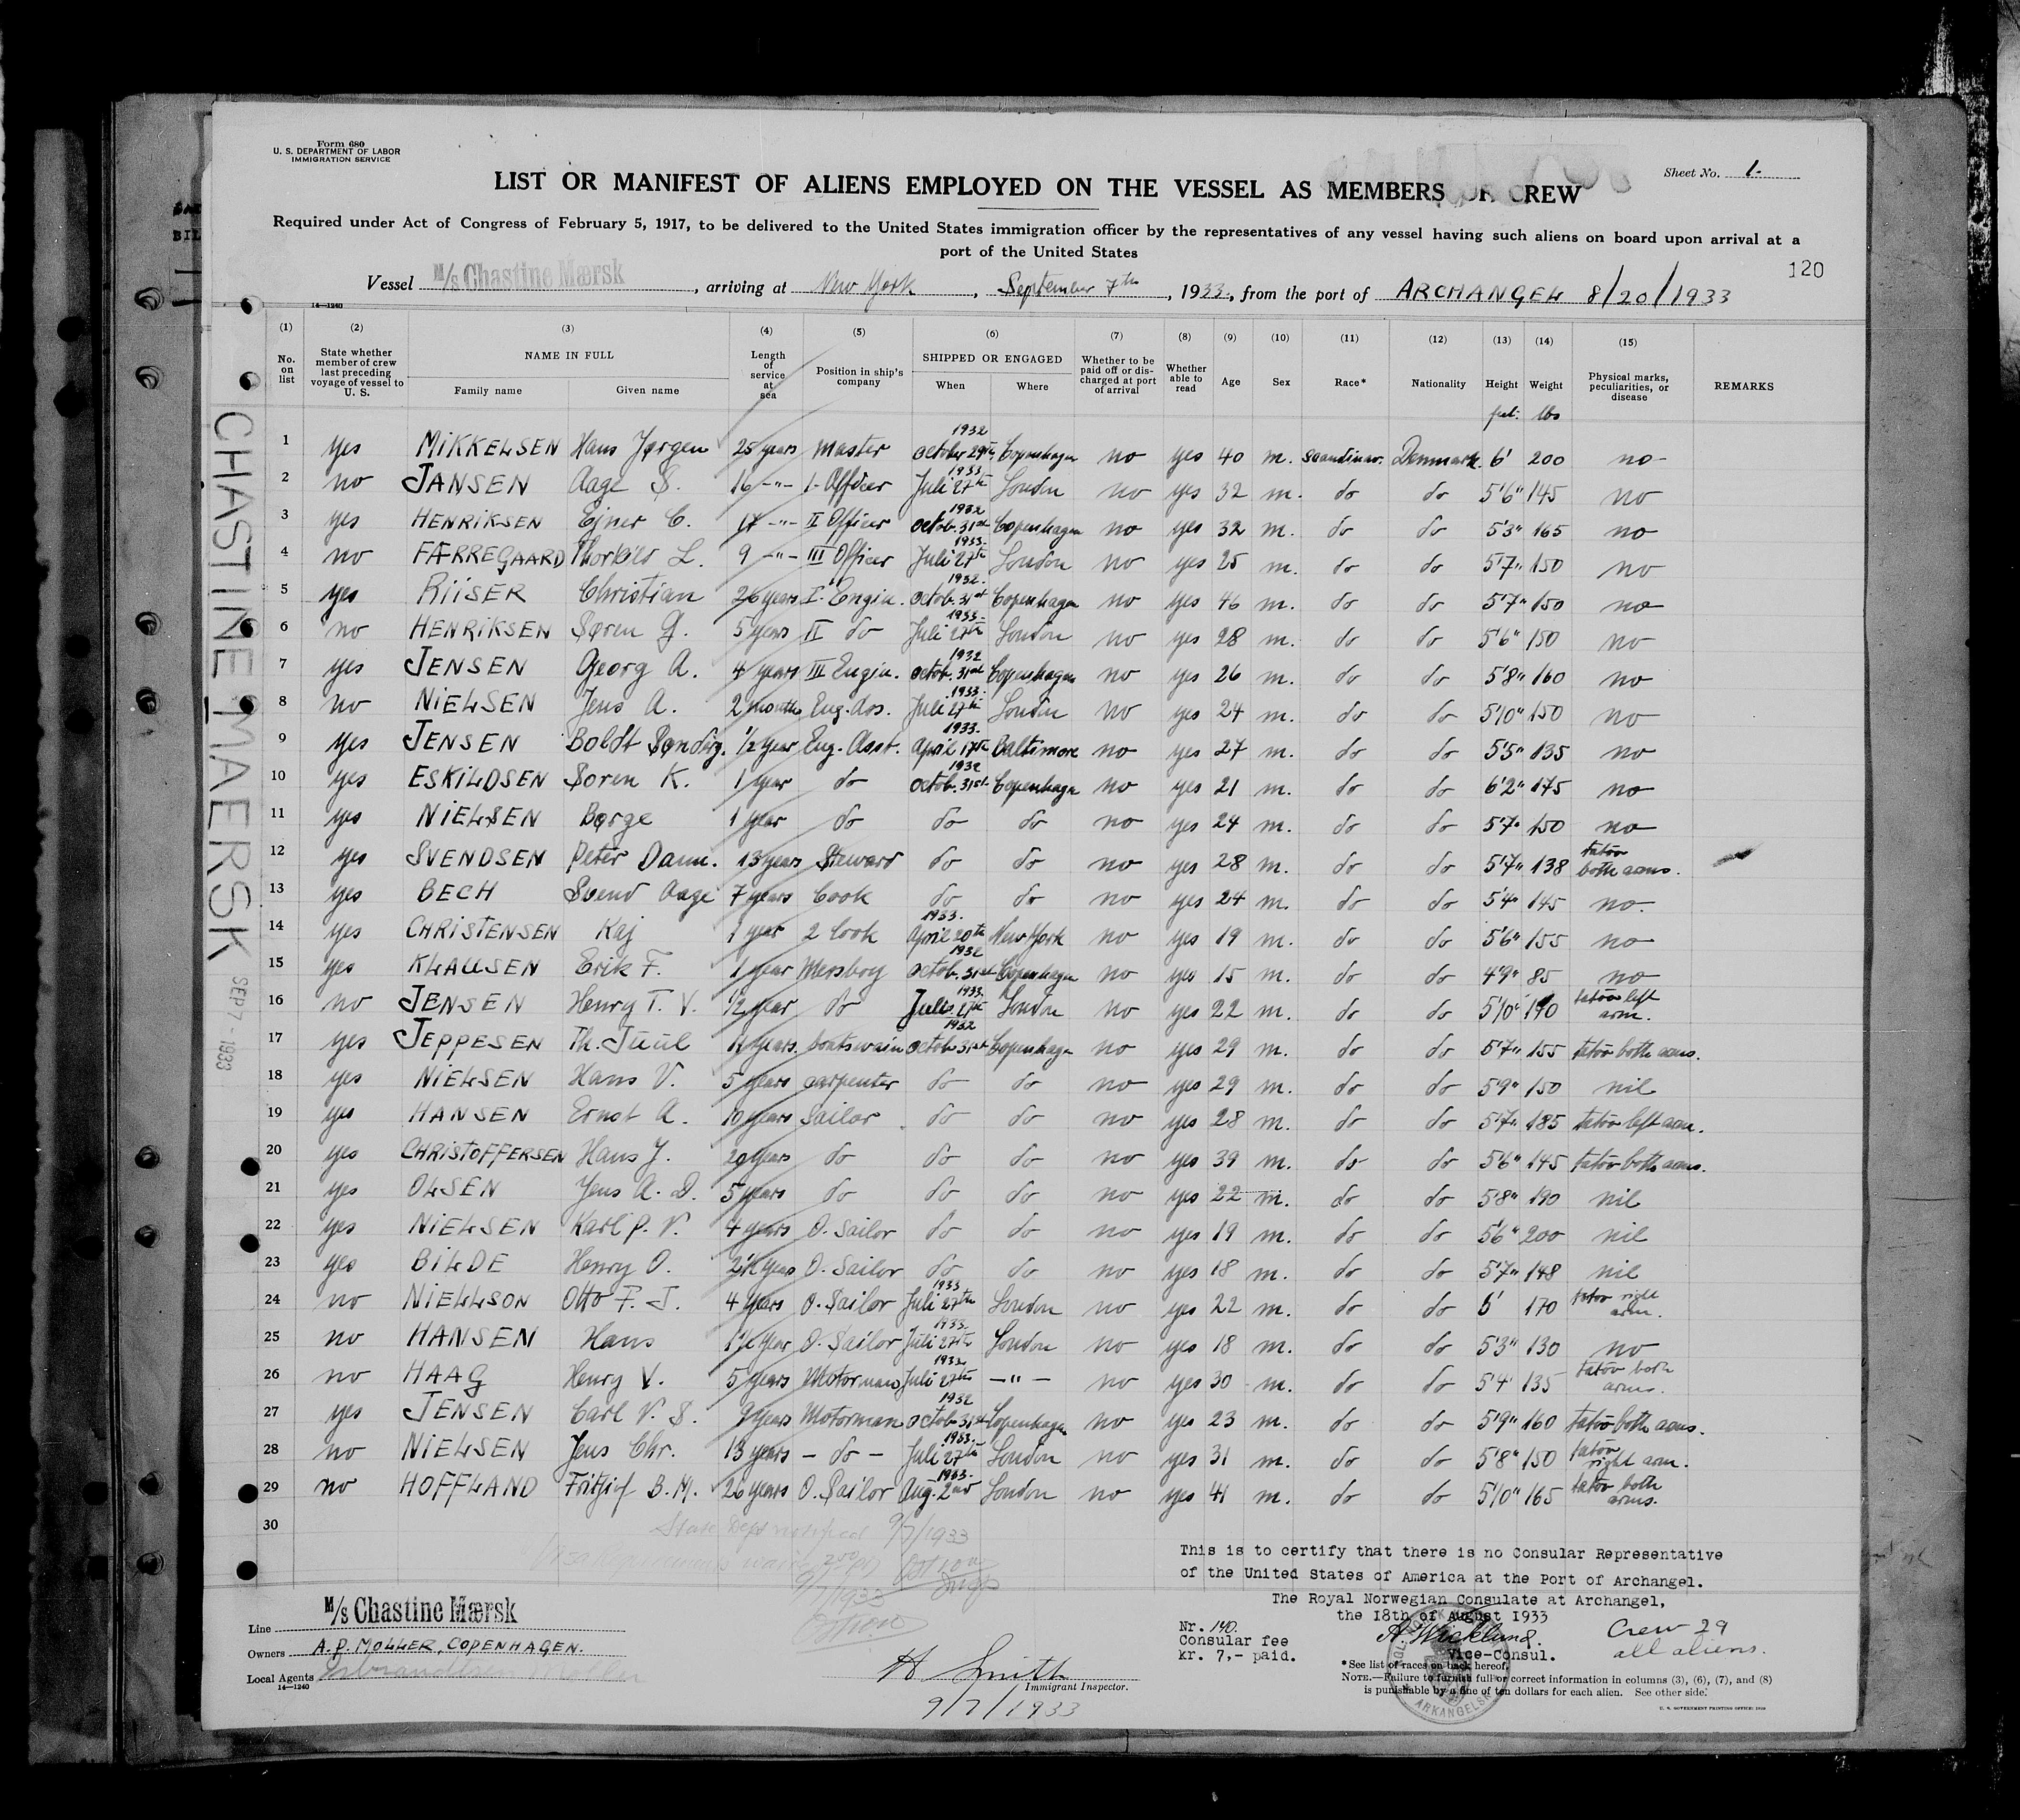 Form 680
U. S. DEPARTMENT OF LABOR
IMMIGRATION SERVICE
Sheet No. 1.
LIST OR MANIFEST OF ALIENS EMPLOYED ON THE VESSEL AS MEMBERS OF CREW
Required under Act of Congress of February 5, 1917, to be delivered to the United States immigration officer by the representatives of any vessel having such aliens on board upon arrival at a
port of the United States
120
Vessel M/s Chastine Mærsk, arriving at New York, September 7th, 1933, from the port of ARCHANGEL 8/20/1933
14—1240
(1) (2) (3) (4) (5) (6) (7) (8) (9) (10) (11) (12) (13) (14) (15)
No. on list State whether member of crew last preceding voyage of vessel to U. S. NAME IN FULL Family name Given name Length of service at sea Position in ship's company SHIPPED OR ENGAGED When Where Whether to be paid off or discharged at port of arrival Whether able to read Age Sex Race* Nationality Height Weight Physical marks, peculiarities, or disease REMARKS
feet: lbs
1 yes MIKKELSEN Hans Jørgen 25 years Master 1932 October 29th Copenhagen no yes 40 m. Scandinav. Denmark. 6' 200 no-
2 no JANSEN Aage S. 16 -"- I- Officer 1933 Juli 27th London no yes 32 m. do do 5'6" 145 no
3 yes HENRIKSEN Ejner C. 17 -"- II Officer 1932 Octob. 31st Copenhagen no yes 32 m. do do 5'3" 165 no
4 no FÆRREGAARD Thorkild L. 9 -"- III Officer 1933. Juli 27th London no yes 25 m. do do 5'7" 150 no
5 yes RIISER Christian 26 years I. Engin. 1932. Octob. 31st Copenhagen no yes 46 m. do do 5'7" 150 no
6 no HENRIKSEN Søren G. 5 years II do 1933. Juli 27th London no yes 28 m. do do 5'6" 150 no
7 yes JENSEN Georg A. 4 years III Engin. 1932 Octob. 31st Copenhagen no yes 26 m. do do 5'8" 160 no
8 no NIELSEN Jens A. 2 months Eng. Ass. 1933. Juli 27th London no yes 24 m. do do 5'10" 150 no
9 yes JENSEN Boldt 1/2 year Eng. Asst. 1933. April 17th Baltimore no yes 27 m. do do 5'5" 135 no
10 yes ESKILDSEN Søren K. 1 year do 1932 Octob. 31st. Copenhagen no yes 21 m. do do 6'2" 175 no
11 yes NIELSEN Børge 1 year do do do no yes 24 m. do do 5'7" 150 no
12 yes SVENDSEN Peter Dam. 13 years Steward do do no yes 28 m. do do 5'7" 138 tatov both arms.
13 yes BECH Svend Aage 7 years Cook do do no yes 24 m. do do 5'4" 145 no.
14 yes CHRISTENSEN Kaj 1 year 2 Cook 1933. April 20th New York no yes 19 m. do do 5'6" 155 no
15 yes KLAUSEN Erik F. 1 year Messboy 1932 Octob. 31st Copenhagen no yes 15 m. do do 4'9" 85 no
16 no JENSEN Henry T. V. 1/2 year do 1933. Juli 27th London no yes 22 m. do do 5'10" 190 tatov left arm.
17 yes JEPPESEN Th. Juul years. boatswain 1932 Octob. 31st Copenhagen no yes 29 m. do do 5'7" 155 tatov both arms.
18 yes NIELSEN Hans V. 5 years carpenter do do no yes 29 m. do do 5'9" 150 nil
19 yes HANSEN Ernst A. 10 years Sailor do do no yes 28 m. do do 5'7" 185 tatov left arm.
20 yes CHRISTOFFERSEN Hans J. 20 years do do do no yes 39 m. do do 5'6" 145 tatov both arms.
21 yes OLSEN Jens A. D. 5 years do do do no yes 22 m. do do 5'8" 190 nil
22 yes NIELSEN Karl P. V. 4 years O. Sailor do do no yes 19 m. do do 5'6" 200 nil
23 yes BILDE Henry O. 2 1/2 years O. Sailor do do no yes 18 m. do do 5'7" 148 nil
24 no NIELLSON Otto F. J. 4 years O. Sailor 1933 Juli 27th London no yes 22 m. do do 6' 170 tatov right arm.
25 no HANSEN Hans 1 1/2 year O. Sailor 1933. Juli 27th London no yes 18 m. do do 5'3" 130 no
26 no HAAG Henry V. 5 years Motorman 1933 Juli 27th -"- no yes 30 m. do do 5'4 135 tatov both arms.
27 yes JENSEN Carl V. S. 9 years Motorman 1932 Octob 31st Copenhagen no yes 23 m. do do 5'9" 160 tatov both arms.
28 no NIELSEN Jens Chr. 13 years - do - 1933. Juli 27th London no yes 31 m. do do 5'8" 150 tatov right arm.
29 no HOFFLAND Fritjof B. M. 26 years O. Sailor 1933. Aug. 2nd London no yes 41 m. do do 5'10" 165 tatov both arms.
30
State Dept notified 9/7/1933
9/7/1933
This is to certify that there is no Consular Representative
of the United States of America at the Port of Archangel.
The Royal Norwegian Consulate at Archangel,
the 18th of August 1933
Nr. 140.
Consular fee
kr. 7,- paid.
A. Wicklund.
Vice-Consul.
Crew 29
all aliens.
Line M/s Chastine Mærsk
Owners A.P. MOLLER, COPENHAGEN.
Local Agents
14—1240
H Smith
Immigrant Inspector.
9/7/1933
*See list of races on back hereof.
NOTE.—Failure to furnish full or correct information in columns (3), (6), (7), and (8)
is punishable by a fine of ten dollars for each alien. See other side.
U. S. GOVERNMENT PRINTING OFFICE
ARKANGELSK
CHASTINE MAERSK
SEP 7 - 1933